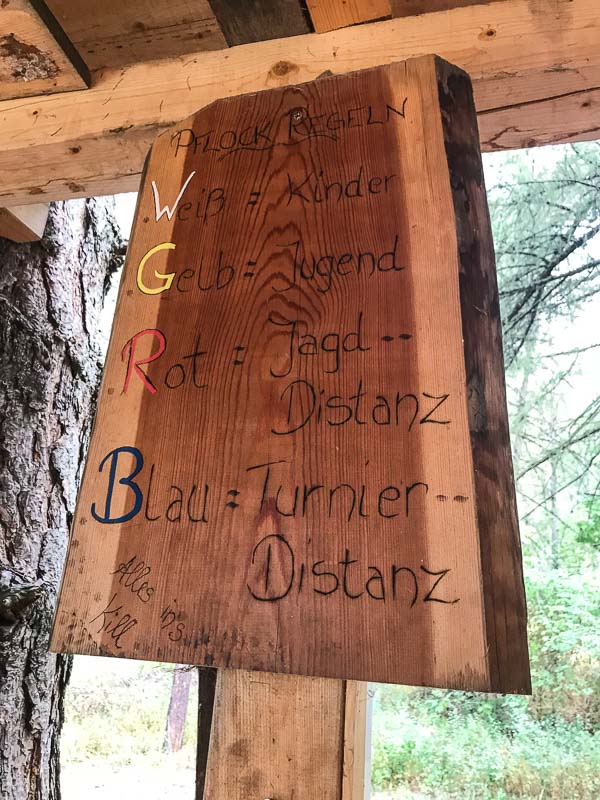 PFLOCK REGELN
Weiß = Kinder
Gelb = Jugend
Rot = Jagd--
Distanz
Blau = Turnier--
Distanz
Alles in's
Kill